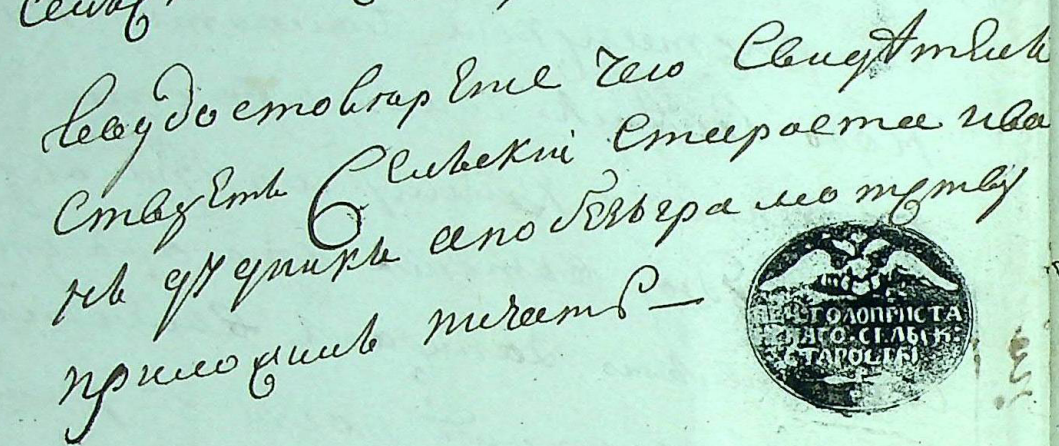 Въ удостоверение чего Свидѣтель
ствуетъ Сельский Староста Ива
нъ Дудникъ а по безъграмотству
приложилъ печать
ПЕЧ. ГОЛОПРИСТА
НСКАГО СЕЛЬСК.
СТАРОСТЫ